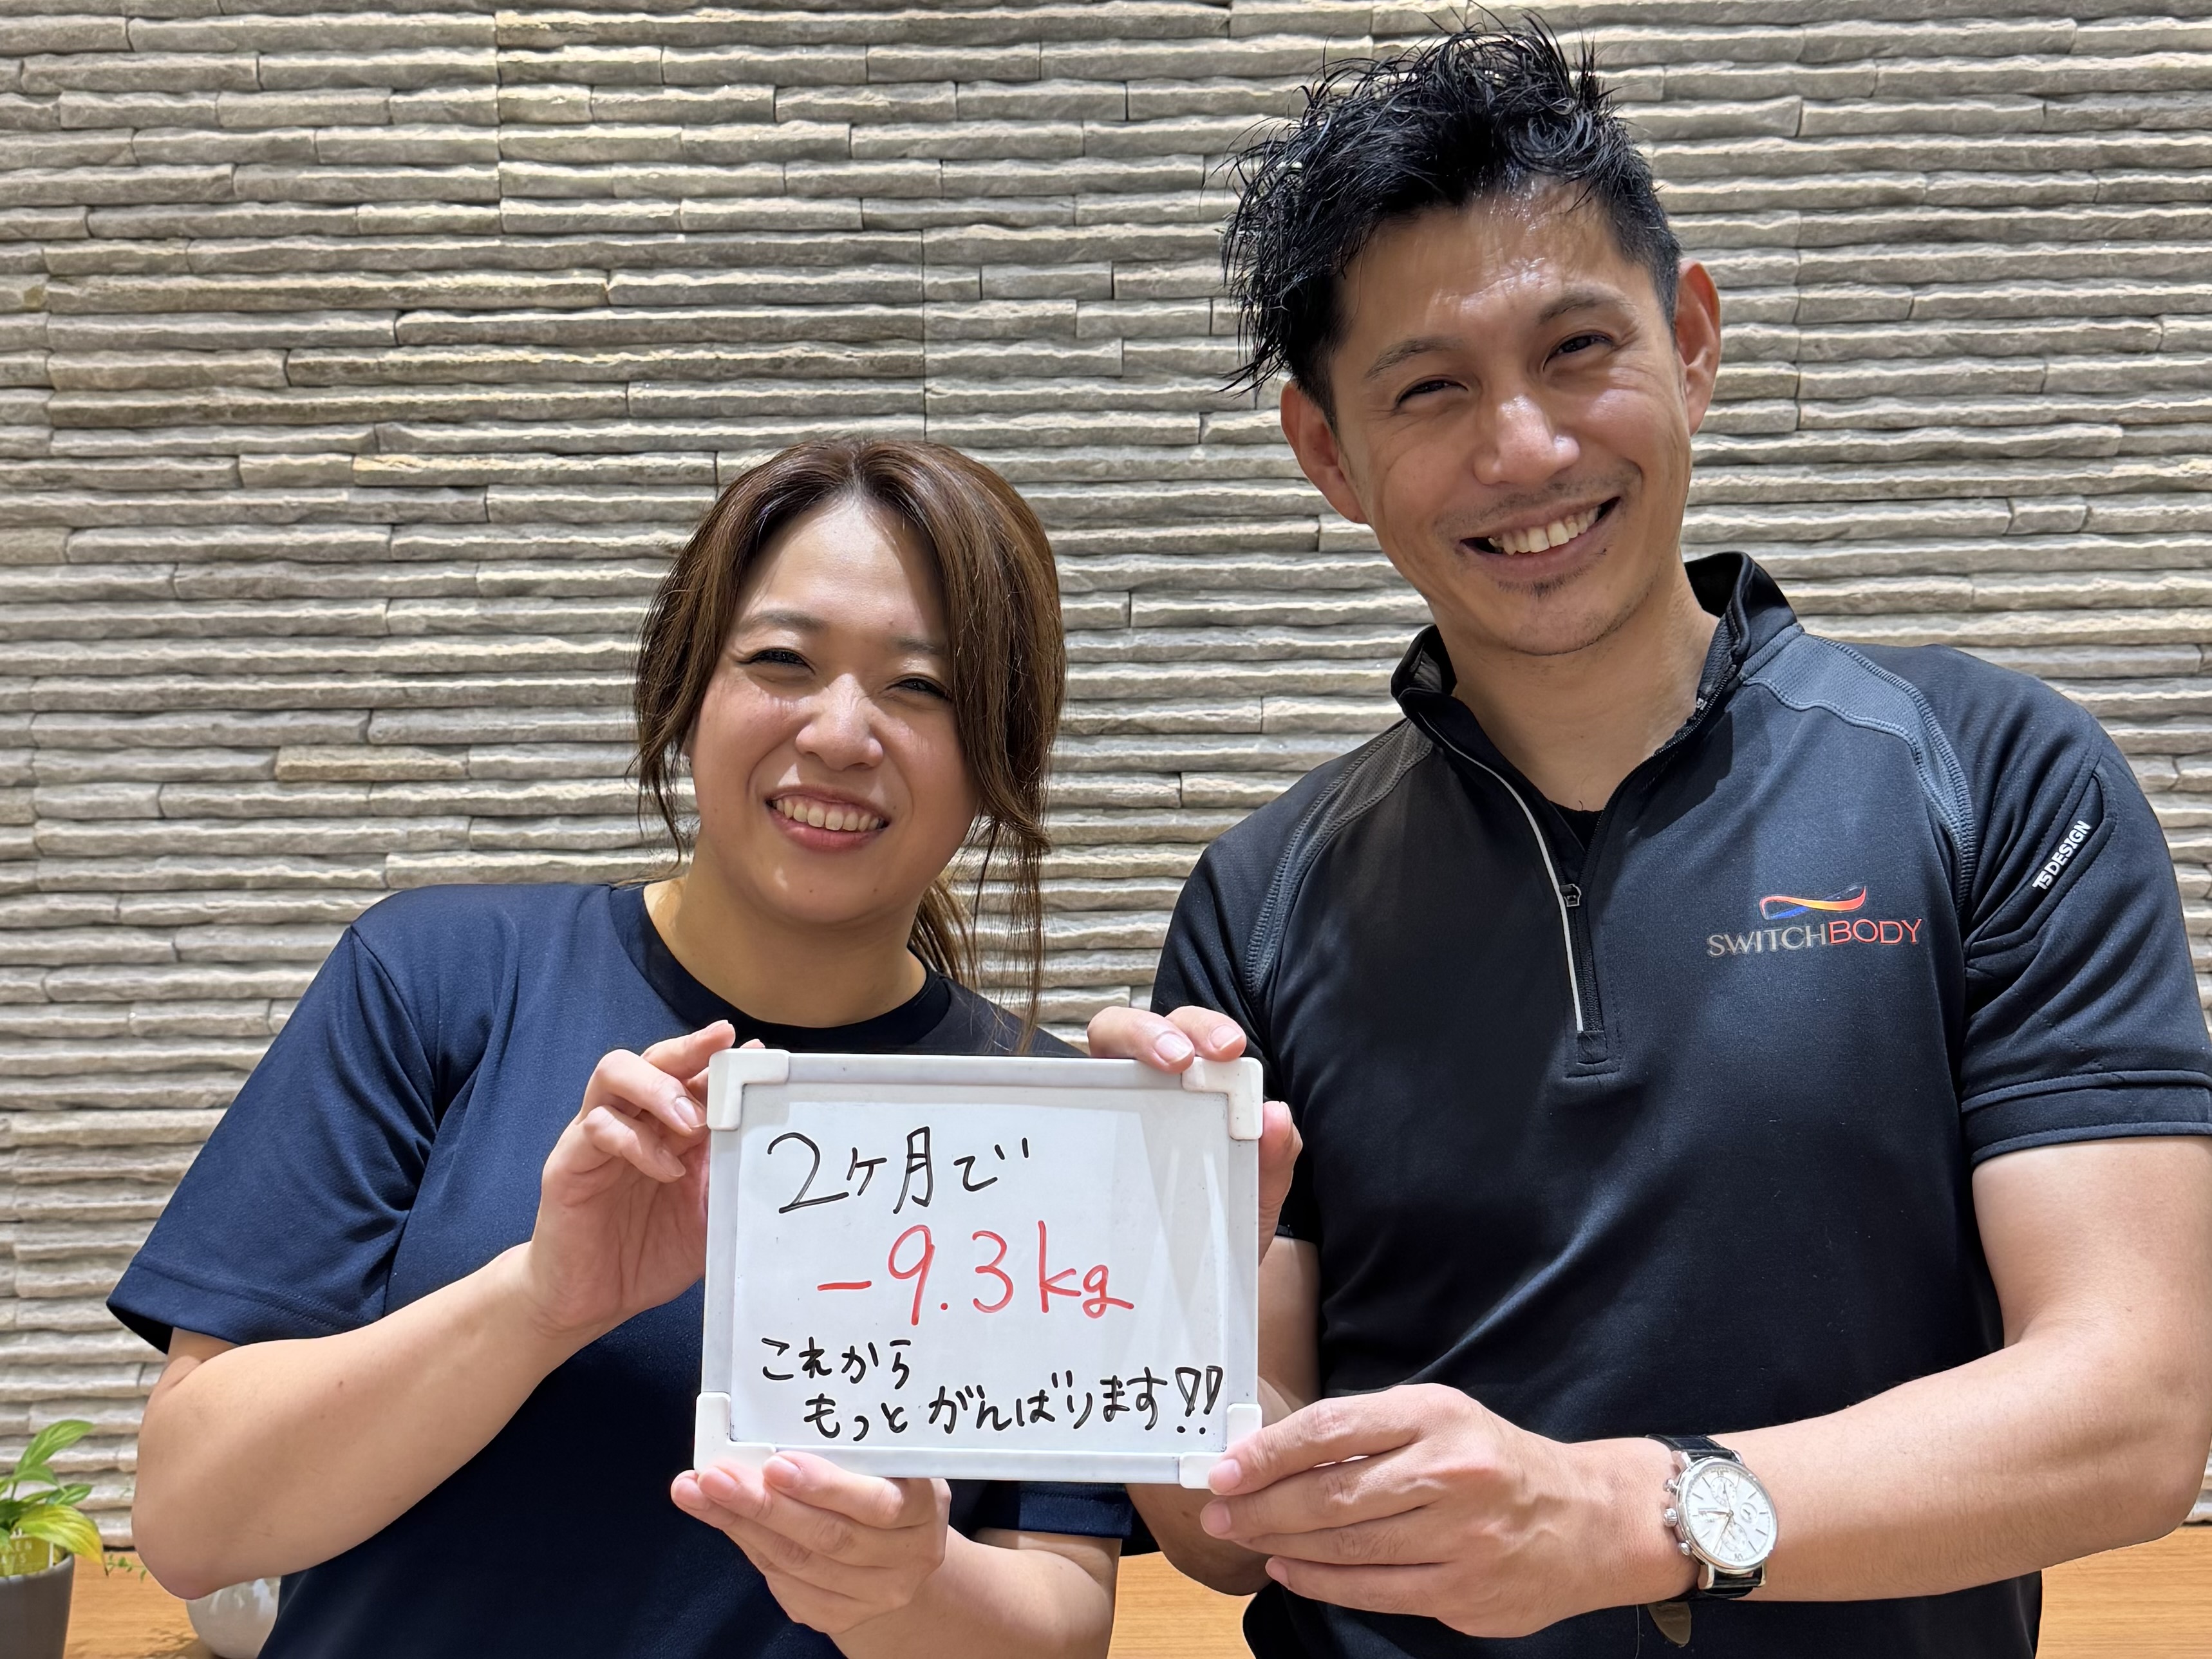 2ヶ月で
-9.3kg
これから
もっとがんばります!!
SWITCHBODY
TS DESIGN